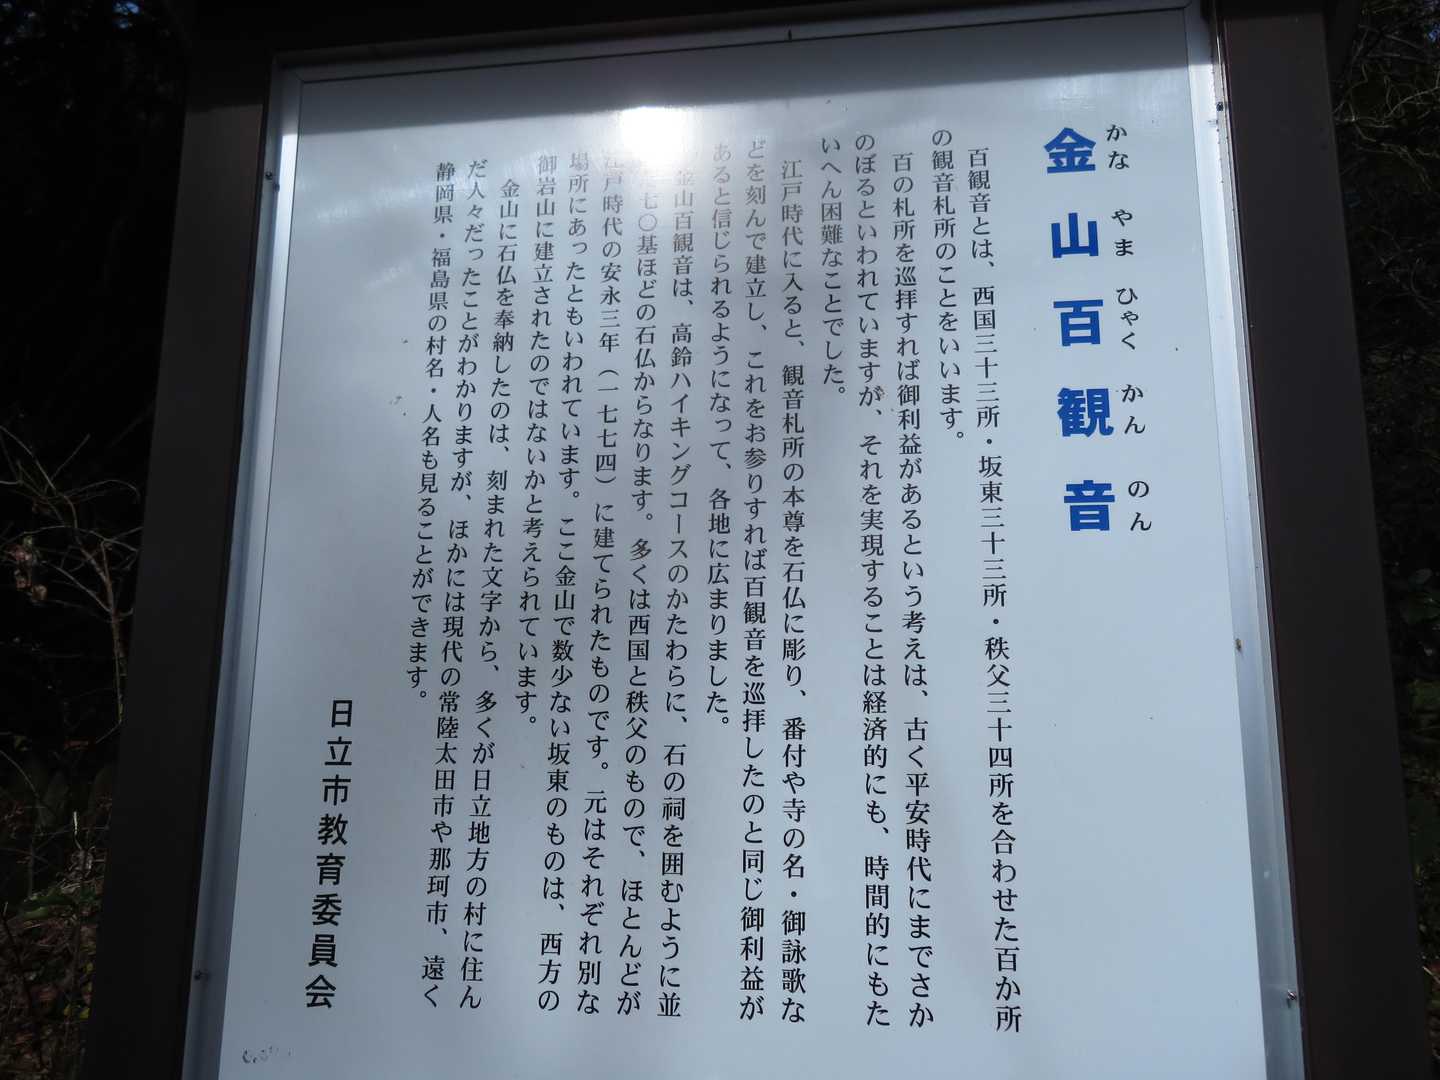 金山百観音
かな やま ひゃく かん のん
百観音とは、西国三十三所・坂東三十三所・秩父三十四所を合わせた百か所
の観音札所のことをいいます。
百の札所を巡拝すれば御利益があるという考えは、古く平安時代にまでさか
のぼるといわれていますが、それを実現することは経済的にも、時間的にもた
いへん困難なことでした。
江戸時代に入ると、観音札所の本尊を石仏に彫り、番付や寺の名・御詠歌な
どを刻んで建立し、これをお参りすれば百観音を巡拝したのと同じ御利益が
あると信じられるようになって、各地に広まりました。
金山百観音は、高鈴ハイキングコースのかたわらに、石の祠を囲むように並
七〇基ほどの石仏からなります。多くは西国と秩父のもので、ほとんどが
江戸時代の安永三年（一七七四）に建てられたものです。元はそれぞれ別な
場所にあったともいわれています。ここ金山で数少ない坂東のものは、西方の
御岩山に建立されたのではないかと考えられています。
金山に石仏を奉納したのは、刻まれた文字から、多くが日立地方の村に住ん
だ人々だったことがわかりますが、ほかには現代の常陸太田市や那珂市、遠く
静岡県・福島県の村名・人名も見ることができます。
日立市教育委員会